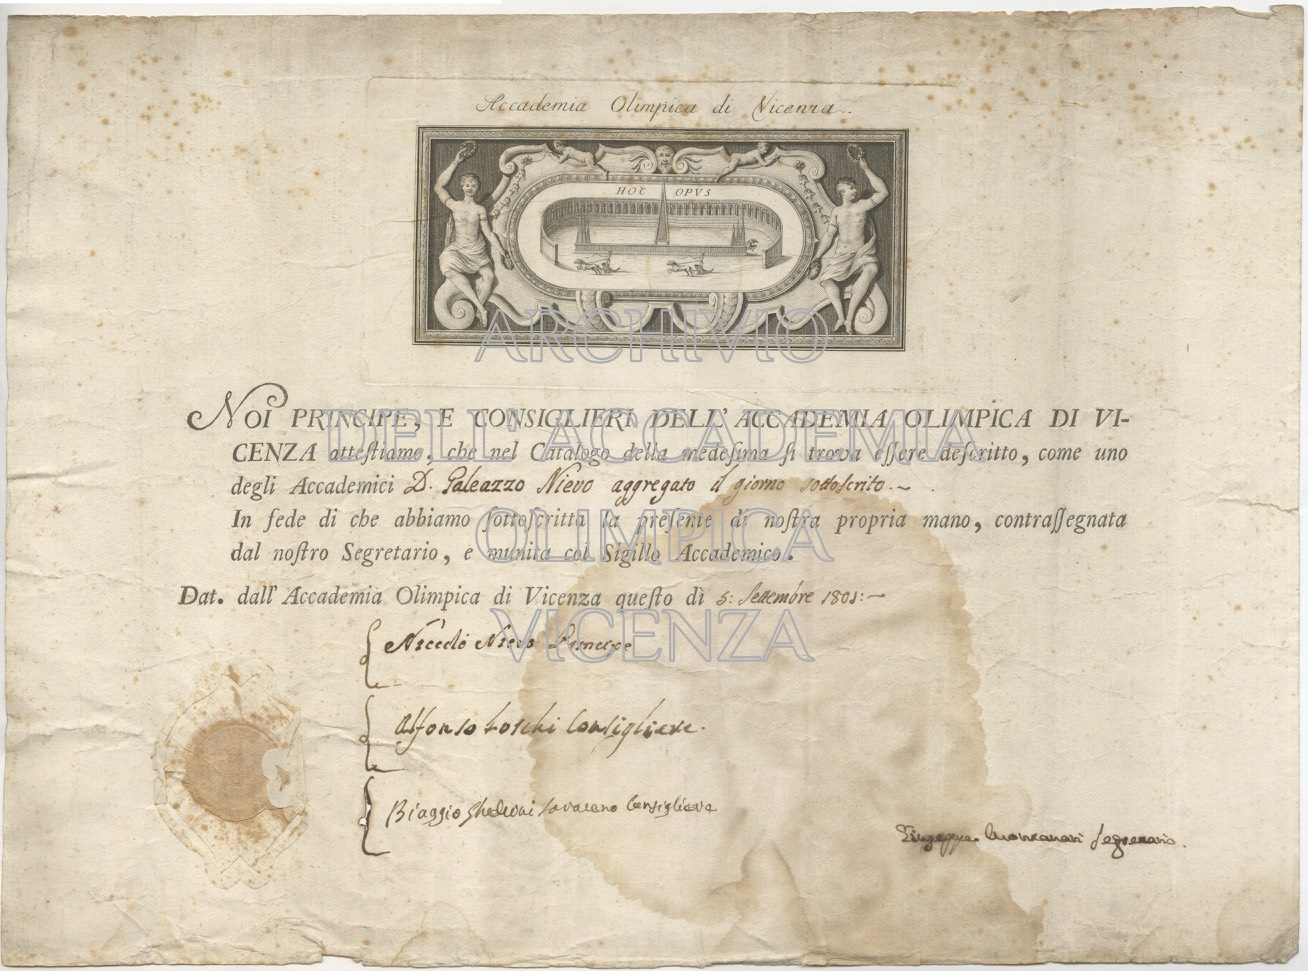 Accademia Olimpica di Vicenza
HOC OPVS
NOI PRINCIPE, E CONSIGLIERI DELL' ACCADEMIA OLIMPICA DI VI-
CENZA atteſtiamo, che nel Catalogo della medeſima ſi trova eſſere deſcritto, come uno
degli Accademici D. Galeazzo Nievo aggregato il giorno sottoscrito.
In fede di che abbiamo ſottoſcritta la preſente di noſtra propria mano, contraſſegnata
dal noſtro Segretario, e munita col Sigillo Accademico.
Dat. dall' Accademia Olimpica di Vicenza queſto dì 5: Settembre 1801:
Niccolò Nievo Principe
Alfonso Loschi Consigliere.
Biaggio Consigliere
Segretario.
ARCHIVIO
DELL'ACCADEMIA
OLIMPICA
VICENZA